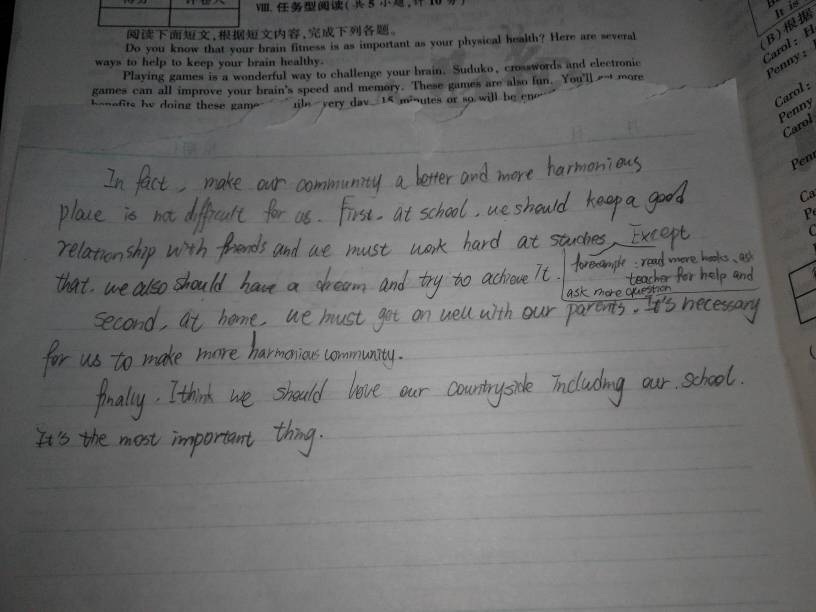 得分 评卷人
VIII. 任务型阅读(共5小题,计10分)
阅读下面短文,根据短文内容,完成下列各题。
Do you know that your brain fitness is as important as your physical health? Here are several
ways to help to keep your brain healthy.
Playing games is a wonderful way to challenge your brain. Suduko, crosswords and electronic
games can all improve your brain's speed and memory. These games are also fun. You'll get more
benefits by doing these game very day. 15 minutes or so will be
In fact, make our community a better and more harmonious
place is not difficult for us. First. at school, we should keep a good
relationship with friends and we must work hard at studies, Except
for example: read more books, ask
teacher for help and
ask more question
that. we also should have a dream and try to achieve it.
second, at home, we must get on well with our parents. It's necessary
for us to make more harmonious community.
finally. I think we should love our countryside including our school.
It's the most important thing.
(B)根据
Carol: H
Penny:
Carol:
Penny
Carol
Penn